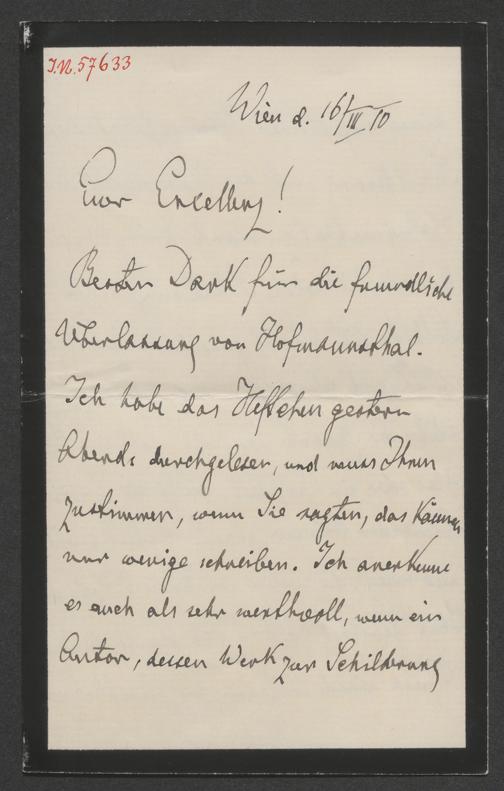 I.N. 57633
Wien d. 16/III 10
Euer Excellenz!
Besten Dank für die freundliche
Überlassung von Hofmannsthal.
Ich habe das Heftchen gestern
Abends durchgelesen, und muss Ihnen
zustimmen, wenn Sie sagten, das können
nur wenige schreiben. Ich anerkenne
es auch als sehr werthvoll, wenn ein
Autor, dessen Werk zur Schilderung